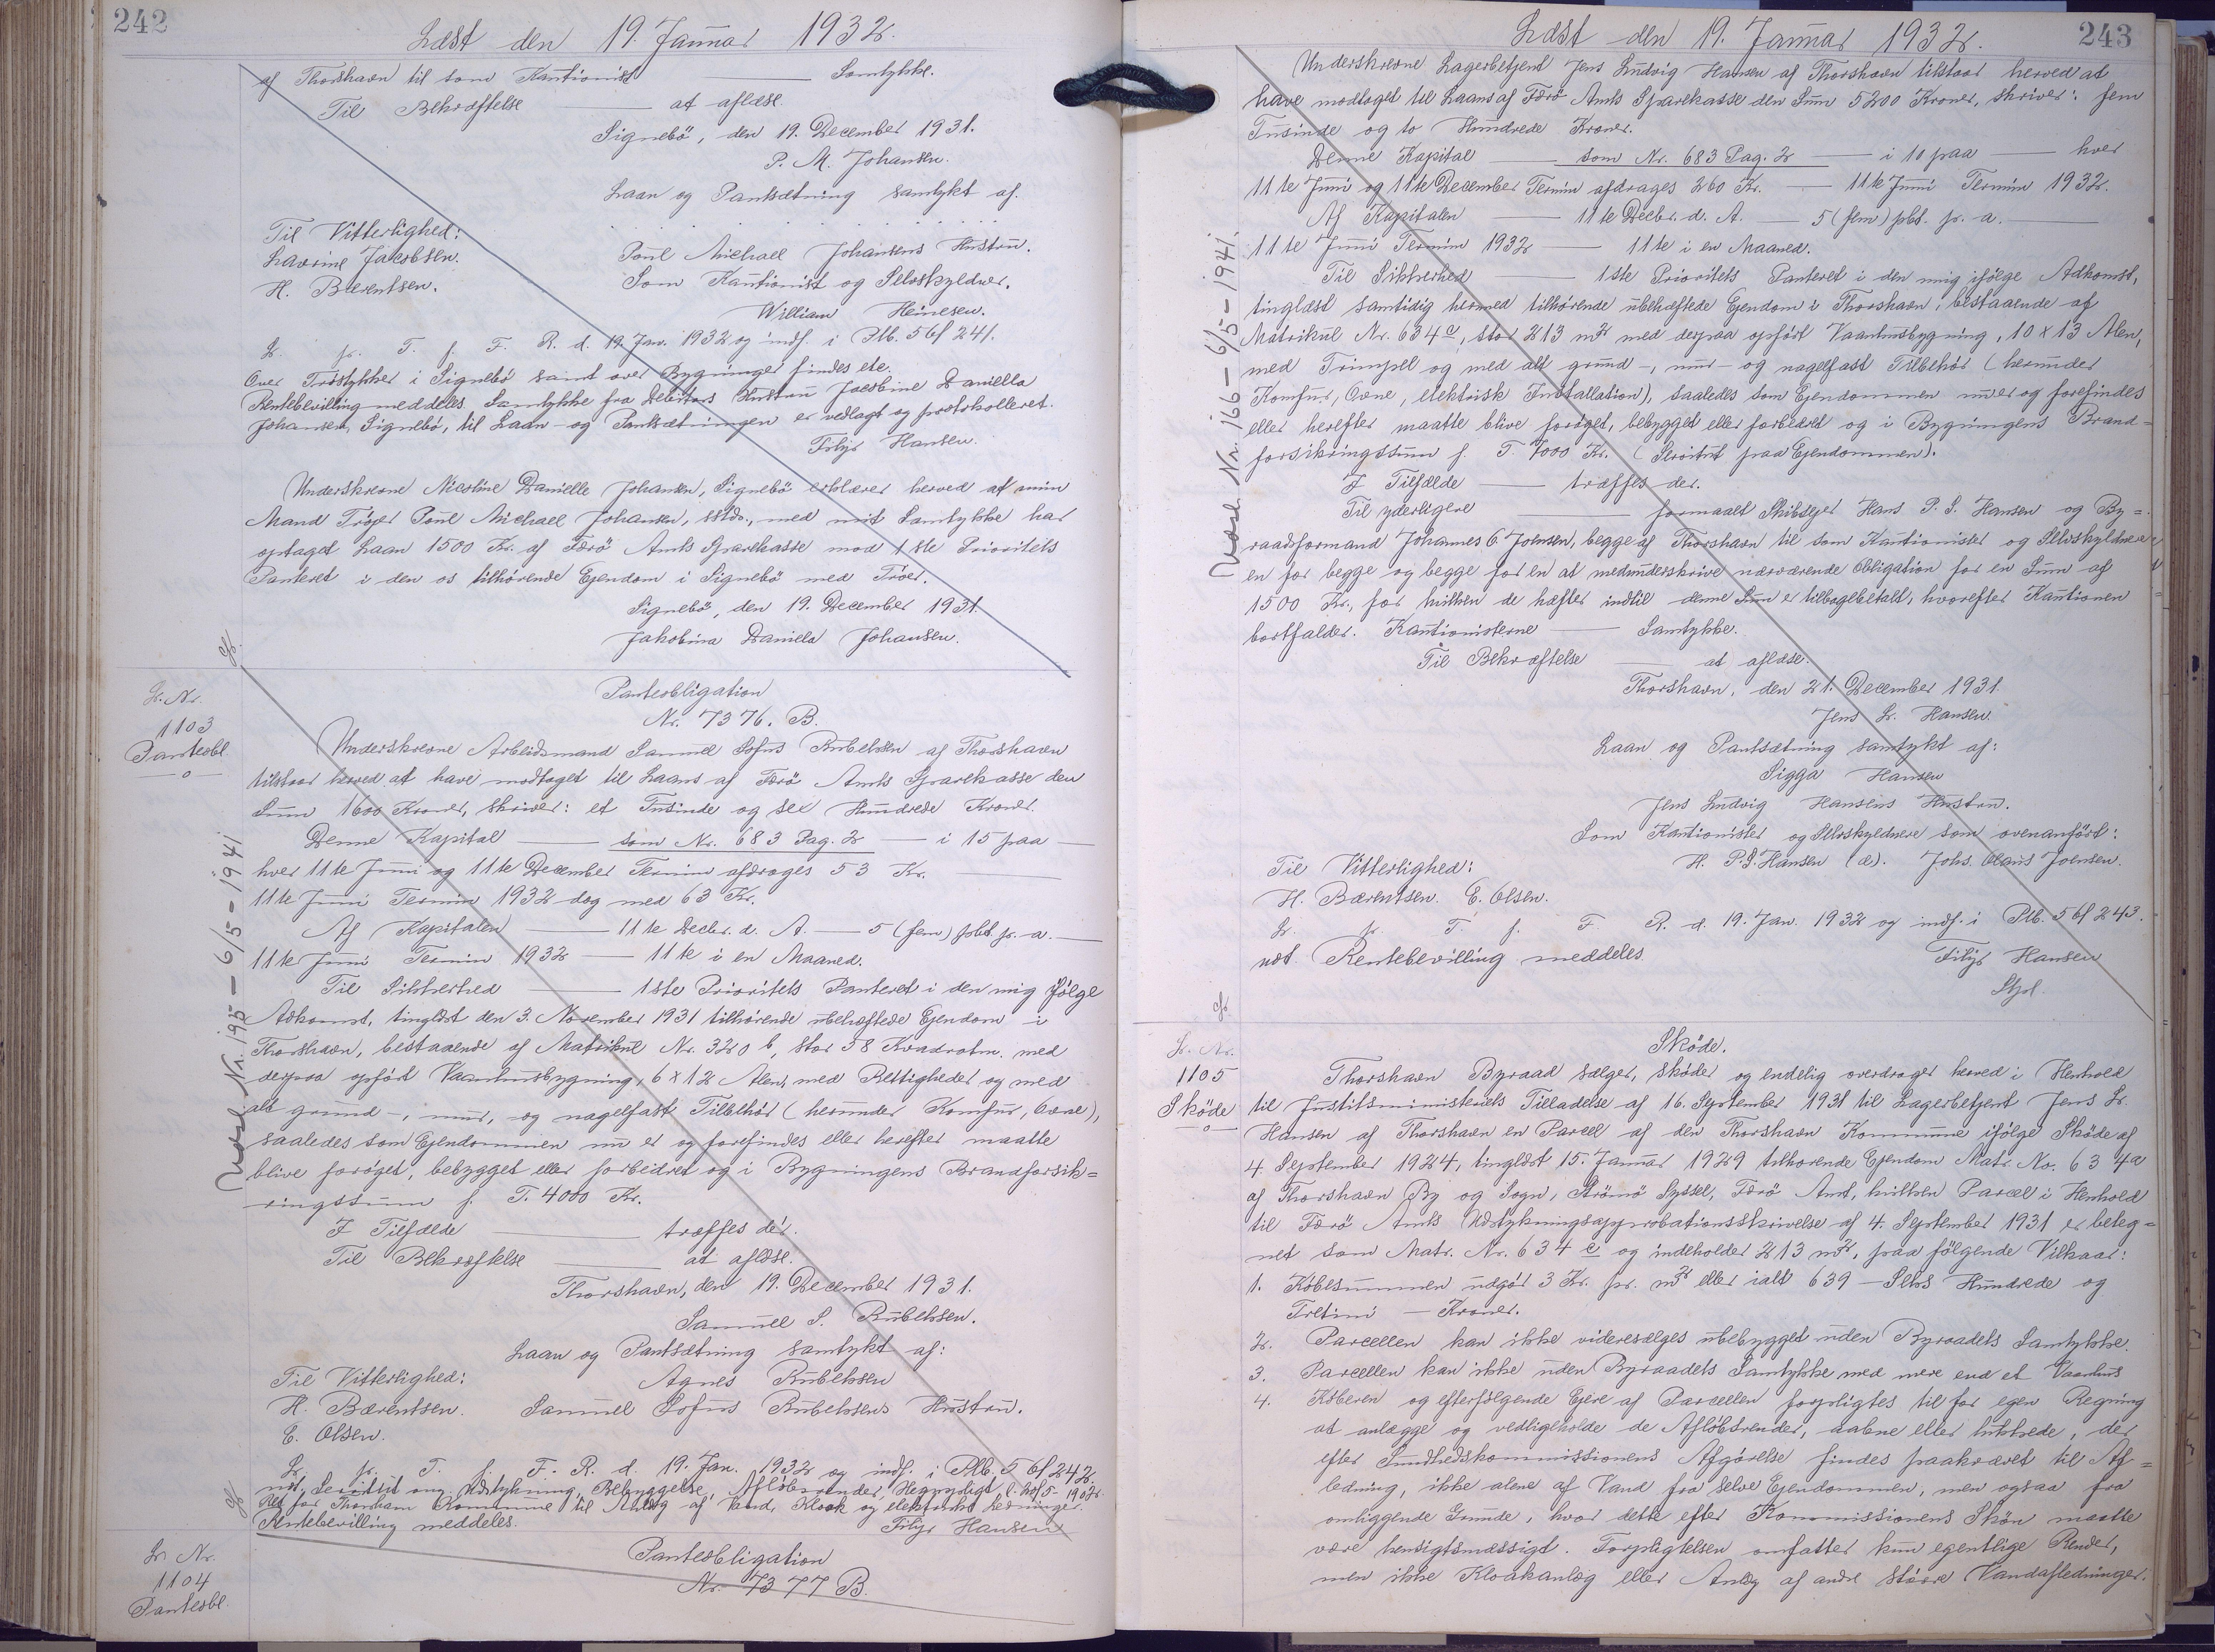 242
Læst den 19. Januar 1932.
af Thorshavn til som Kautionist — Samtykke.
Til Bekræftelse — at aflæse.
Signebö, den 19. December 1931.
P. M. Johansen.
Laan og Pantsætning samtykt af.
Til Vitterlighed:
Lavrine Jacobsen. Poul Michael Johansens Hustru.
H. Bærentsen. Som Kautionist og Selvskyldner.
William Heinesen.
L. p. T. f. F. R. d. 19. Jan. 1932 og indf. i Ptb. 56 f 241.
Over Tröstykker i Signebö samt over Bygninger findes etc.
Rentebevilling meddeles. Samtykke fra Debitors Hustru Jacobine Daniella
Johansen, Signebö, til Laan- og Pantsætningen er vedlagt og protokolleret.
Filip Hansen.
Underskrevne Nicoline Danielle Johansen, Signebö erklærer herved at min
Mand Tröjer Poul Michael Johansen, sstds., med mit Samtykke har
optaget Laan 1500 Kr. af Færö Amts Sparekasse mod 1ste Prioritets
Panteret i den os tilhörende Ejendom i Signebö med Tröer.
Signebö, den 19. December 1931.
Jakobina Daniela Johansen.
L. Nr.
1103
Panteobl.
Panteobligation
Nr. 7376. B.
Underskrevne Arbeidsmand Samuel Sofus Rubeksen af Thorshavn
tilstaar herved at have modtaget til Laans af Færö Amts Sparekasse den
Sum 1600 Kroner, skriver: et Tusinde og sex Hundrede Kroner.
Denne Kapital — som Nr. 683 Pag. 2 — i 15 paa —
hver 11te Juni og 11te December Termin afdrages 53 Kr. —
11te Juni Termin 1932 dog med 63 Kr.
Af Kapitalen — 11te Decbr. d. A. — 5 (fem) pbt. p. a. —
11te Juni Termin 1932 — 11te i en Maaned.
Til Sikkerhed — 1ste Prioritets Panteret i den mig ifölge
Adkomst, tinglæst den 3. November 1931 tilhörende ubehæftede Ejendom i
Thorshavn, bestaaende af Matrikul Nr. 320 b, stor 58 Kvadratm. med
derpaa opfört Vaanhusbygning, 6 x 12 Alen, med Rettigheder og med
alt grund-, mur, og nagelfast Tilbehör (herunder Komfur, Ovne),
saaledes som Ejendommen nu er og forefindes eller herefter maatte
blive foröget, bebygget eller forbedret og i Bygningens Brandforsik=
ringssum f. T. 4000 Kr.
I Tilfælde — træffes der.
Til Bekræftelse — at aflæse.
Thorshavn, den 19. December 1931.
Samuel S. Rubeksen.
Laan og Pantsætning samtykt af:
Til Vitterlighed: Agnes Rubeksen
H. Bærentsen. Samuel Sofus Rubeksens Hustru.
E. Olsen.
L. p. T. f. F. R. d. 19. Jan. 1932 og indf. i Ptb. 56 f 242.
udt. Servitut ang. Udstykning, Bebyggelse, Aflöbsrender, Hegnspligt,
Ret for Thorshavn Kommune til Anlæg af Vand, Kloak og elektriske Ledninger.
Rentebevilling meddeles. Filip Hansen
Udsl. Nr. 195 — 6/5 - 1941
L. Nr.
1104
Panteobl.
Panteobligation
Nr. 7377 B.
243
Læst den 19. Januar 1932.
Underskrevne Lagerbetjent Jens Ludvig Hansen af Thorshavn tilstaar herved at
have modtaget til Laans af Færö Amts Sparekasse den Sum 5200 Kroner, skriver: fem
Tusinde og to Hundrede Kroner.
Denne Kapital — som Nr. 683 Pag. 2 — i 10 paa — hver
11te Juni og 11te December Termin afdrages 260 Kr. — 11te Juni Termin 1932.
Af Kapitalen — 11te Decbr. d. A. — 5 (fem) pbt. p. a. —
11te Juni Termin 1932 — 11te i en Maaned.
Til Sikkerhed — 1ste Prioritets Panteret i den mig ifölge Adkomst,
tinglæst samtidig hermed tilhörende ubehæftede Ejendom i Thorshavn, bestaaende af
Matrikul Nr. 634 e, stor 213 m2 med derpaa opfört Vaanhusbygning, 10 x 13 Alen,
med Trimpel og med alt grund-, mur- og nagelfast Tilbehör (herunder
Komfur, Ovne, elektrisk Installation), saaledes som Ejendommen nu er og forefindes
eller herefter maatte blive foröget, bebygget eller forbedret og i Bygningens Brand=
forsikringssum f. T. 7000 Kr. (Servitut paa Ejendommen).
I Tilfælde — træffes der.
Til yderligere — formaaet Skibsejer Hans P. S. Hansen og By=
raadsformand Johannes O. Joensen, begge af Thorshavn til som Kautionister og Selvskyldnere
en for begge og begge for en at medunderskrive nærværende Obligation for en Sum af
1500 Kr., for hvilken de hæfter indtil denne Sum er tilbagebetalt, hvorefter Kautionen
bortfalder. Kautionisterne — Samtykke.
Til Bekræftelse — at aflæse.
Thorshavn, den 21. December 1931.
Jens L. Hansen.
Laan og Pantsætning samtykt af:
Sigga Hansen
Jens Ludvig Hansens Hustru.
Som Kautionister og Selvskyldnere som ovenanfört:
Til Vitterlighed: H. P. S. Hansen (æ). Johs. Olaus Joensen.
H. Bærentsen. E. Olsen.
L. p. T. f. F. R. d. 19. Jan. 1932 og indf. i Ptb. 56 f 243.
udt. Rentebevilling meddeles. Filip Hansen
Udsl. Nr. 166 — 6/5 - 1941.
L. Nr.
1105
Sköde
Sköde.
Thorshavn Byraad sælger, sköder og endelig overdrager herved i Henhold
til Justitsministeriets Tilladelse af 16. September 1931 til Lagerbetjent Jens L.
Hansen af Thorshavn en Parcel af den Thorshavn Kommune ifölge Sköde af
4. September 1924, tinglæst 15. Januar 1929 tilhörende Ejendom Matr. No. 63 4a
af Thorshavn By og Sogn, Strömö Syssel, Færö Amt, hvilken Parcel i Henhold
til Færö Amts Udstykningsapprobationsskrivelse af 4. September 1931 er beteg=
net som Matr. Nr. 634 e og indeholder 213 m2, paa fölgende Vilkaar:
1. Köbesummen udgör 3 Kr. pr. m2 eller ialt 639 — Seks Hundrede og
Tretini — Kroner.
2. Parcellen kan ikke videresælges ubebygget uden Byraadets Samtykke.
3. Parcellen kan ikke uden Byraadets Samtykke med mere end et Vaanhus
4. Köberen og efterfölgende Ejere af Parcellen forpligtes til for egen Regning
at anlægge og vedligeholde de Aflöbsrender, aabne eller lukkede, der
efter Sundhedskommissionens Afgörelse findes paakrævet til Af=
ledning, ikke alene af Vand fra selve Ejendommen, men ogsaa fra
omliggende Grunde, hvor dette efter Kommissionens Skön maatte
være hensigtsmæssigt. Forpligtelsen omfatter kun egentlige Render,
men ikke Kloakanlæg eller Anlæg af andre större Vandafledninger.